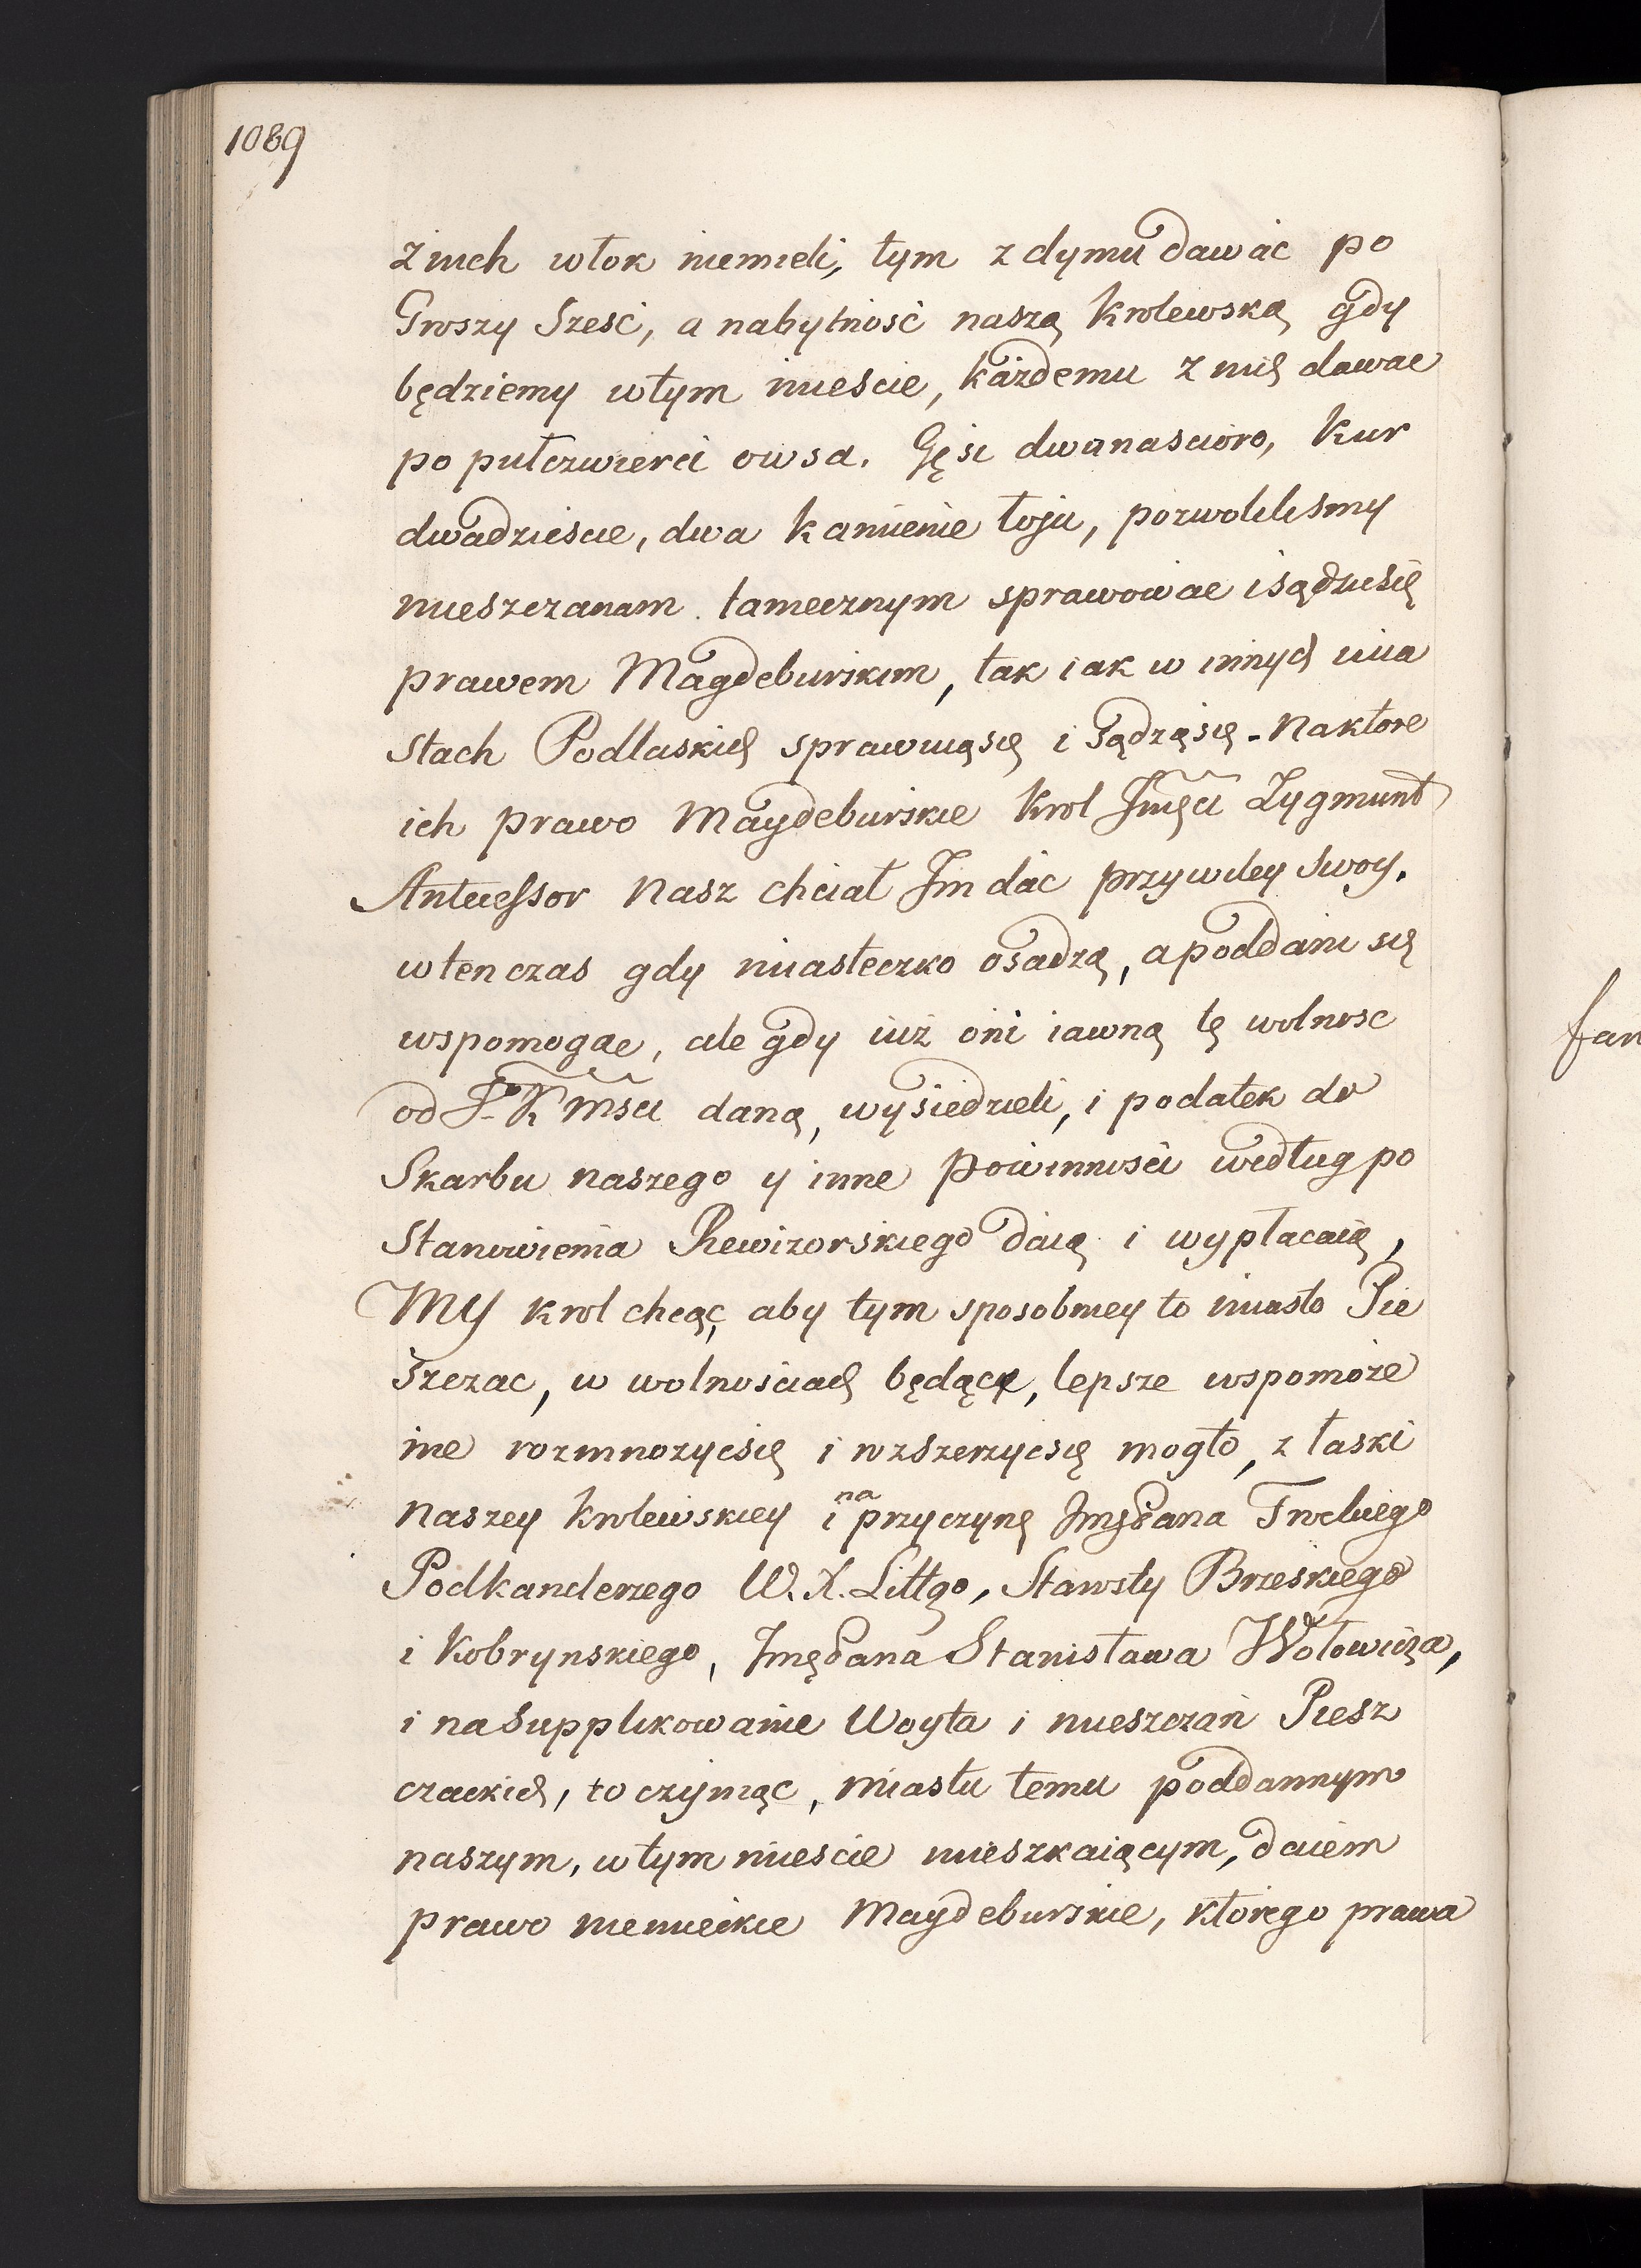 1089
z nich włok niemieli, tym z dymu dawać po
Groszy Sześć, a nabytność naszą Krolewską gdy
będziemy wtym mieście, każdemu z nich dawac
po pułczwierci owsa. Gęsi dwanascioro, Kur
dwadzieście, dwa kamienie łoju, pozwoliliśmy
mieszczanam tamecznym sprawowac i sądzicsię
prawem Magdeburskim, tak iak w innych mia
stach Podlaskich sprawuiąsię i sądząsię - naktore
ich prawo Maydeburskie Krol Jmsci Zygmunt
Antecessor Nasz chciał Im dać przywiley Swoy.
wtenczas gdy miasteczko osadzą, apoddani się
wspomogae, ale gdy iuż oni iawną tę wolnosc
od J. K Msci daną, wysiedzieli, i podatek do
Skarbu naszego y inne Powinności według po
Stanowienia Rewizorskiego daią i wypłacaią,
MY Krol chcąc, aby tym sposobniey to miasto Pie
szczac, w wolnościach będące, lepsze wspomoże
nie rozmnozycsię i rozszerzycsię mogło, z łaski
naszey Krolewskiey i na przyczynę Jmspana
Podkanclerzego W. X. Littgo, Stawsty Brzeskiego
i Kobrynskiego, Jmspana Stanisława Wołowicza,
i na Supplikowanie Woyta i mieszczan Piesz
czackich, to czyniąc, miastu temu poddannym
naszym, wtym mieście mieszkaiącym, daiem
prawo niemieckie Maydeburskie, ktorego prawa
fan